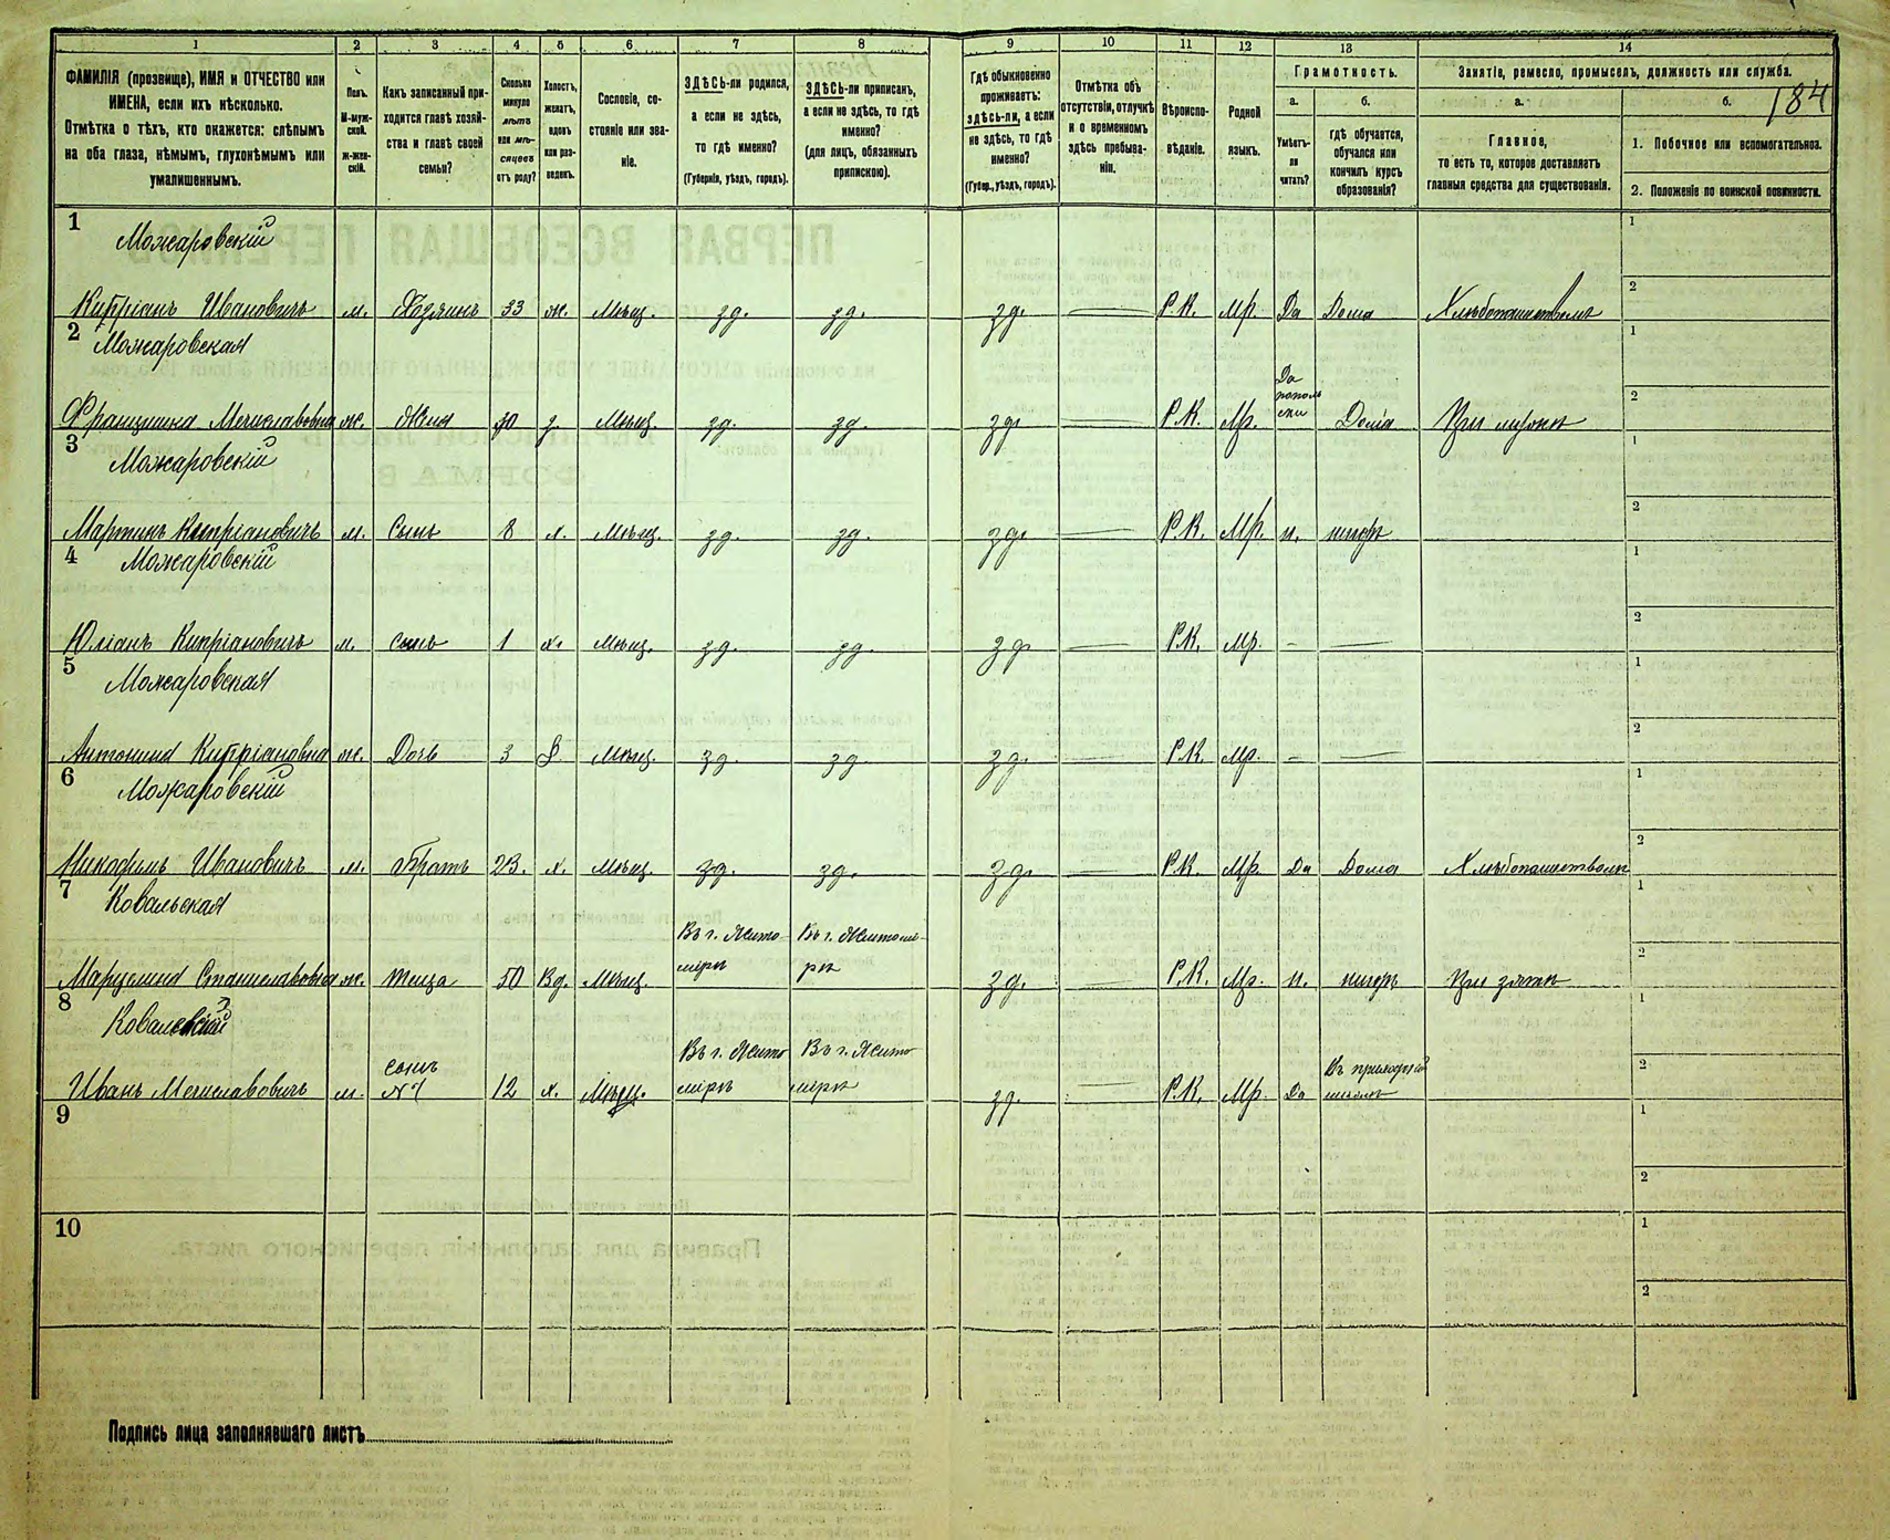 1 2 3 4 5 6 7 8 9 10 11 12 13 14
184
ФАМИЛІЯ (прозвище), ИМЯ и ОТЧЕСТВО или
ИМЕНА, если ихъ нѣсколько.
Отмѣтка о тѣхъ, кто окажется: слѣпымъ
на оба глаза, нѣмымъ, глухонѣмымъ или
умалишеннымъ.
Полъ.
М-муж-
ской.
ж-жен-
скій.
Какъ записанный при-
ходится главѣ хозяй-
ства и главѣ своей
семьи?
Сколько
минуло
лѣтъ
или мѣ-
сяцевъ
отъ роду?
Холостъ,
женатъ,
вдовъ
или раз-
веденъ.
Сословіе, со-
стояніе или зва-
ніе.
ЗДѢСЬ-ли родился,
а если не здѣсь,
то гдѣ именно?
(Губернія, уѣздъ, городъ).
ЗДѢСЬ-ли приписанъ,
а если не здѣсь, то гдѣ
именно?
(для лицъ, обязанныхъ
припискою).
Гдѣ обыкновенно
проживаетъ:
здѣсь-ли, а если
не здѣсь, то гдѣ
именно?
(Губер., уѣздъ, городъ).
Отмѣтка объ
отсутствіи, отлучкѣ
и о временномъ
здѣсь пребыва-
ніи.
Вѣроиспо-
вѣданіе.
Родной
языкъ.
Грамотность.
а.
Умѣетъ-
ли
читать?
б.
гдѣ обучается,
обучался или
кончилъ курсъ
образованія?
Занятіе, ремесло, промыселъ, должность или служба.
а.
Главное,
то есть то, которое доставляетъ
главныя средства для существованія.
б.
1. Побочное или вспомогательное.
2. Положеніе по воинской повинности.
1 Можаровскій 1
2
Кипріанъ Ивановичъ м. Хозяинъ 33 ж. Мѣщ. зд. зд. зд. — Р.К. Мр. Да Дома Хлѣбопашествомъ
2 Можаровская 1
2
Да
пополь
ски
Францишка Мечиславовна ж. Жена 30 з. Мѣщ. зд. зд. зд. — Р.К. Мр. Дома При мужѣ
3 Можаровскій 1
2
Мартинъ Кипріановичъ м. Сынъ 8 х. Мѣщ. зд. зд. зд. — Р.К. Мр. н. нигдѣ
4 Можаровскій 1
2
Юліанъ Кипріановичъ м. сынъ 1 х. Мѣщ. зд. зд. зд. — Р.К. Мр. – —
5 Можаровская 1
2
Антонина Кипріановна ж. Дочь 3 Мѣщ. зд. зд. зд. — Р.К. Мр. – —
6 Можаровскій 1
2
Никодимъ Ивановичъ м. Братъ 23. х. Мѣщ. зд. зд. зд. — Р.К. Мр. Да Дома Хлѣбопашествомъ
7 Ковальская 1
Въ г. Жито- Въ г. Житоми-
мірѣ рѣ 2
Станиславовна ж. теща 50 Вд. Мѣщ. зд. — Р.К. Мр. н. нигдѣ При зятѣ
8 1
Въ г. Жито Въ г. Жито
сынъ Въ приходской 2
Иванъ Мечиславовичъ м. №7 12 х. Мѣщ. мірѣ мирѣ зд. — Р.К. Мр. Да школѣ
9 1
2
10 1
2
Подпись лица заполнявшаго листъ